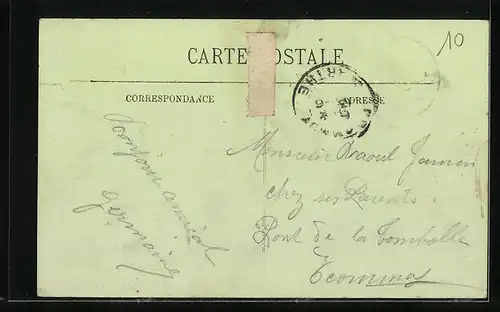 10
CARTE POSTALE
CORRESPONDANCE
ADRESSE
Bonjour amical
Germaine
Monsieur Raoul
chez ses Parents
Pont de la Tombelle
Ecommoy